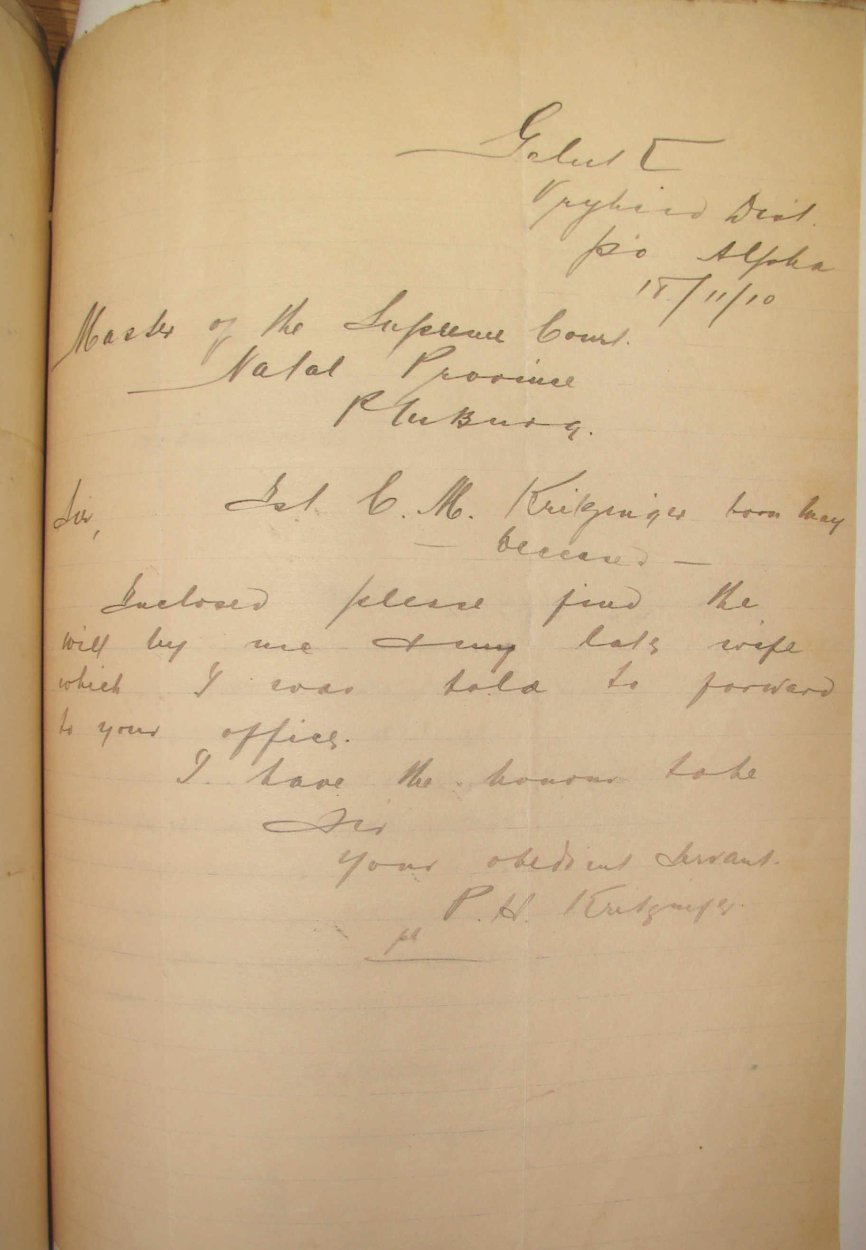 Geluk
Vryheid Dist.
p/o Alpha
18/11/10
Master of the Supreme Court.
Natal Province
PMBurg.
Sir,
Est C. M. Kritzinger born May
Deceased —
Inclosed please find the
will by me & my late wife
which I was told to forward
to your office.
I have the honour to be
Sir
Your obedient Servant.
P. H. Kritzinger